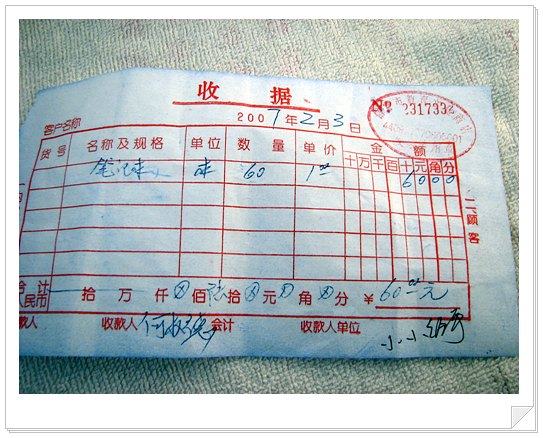 收 据
№ 2317332
客户名称 2007年2月3日
货号 名称及规格 单位 数量 单价 金额
十万千百十元角分
笔记本 本 60 1.00 6000
二、顾客
合计人民币 拾 万 仟 佰 陆拾 元 角 分 ¥ 60.00元
款人 收款人 会计 收款人单位